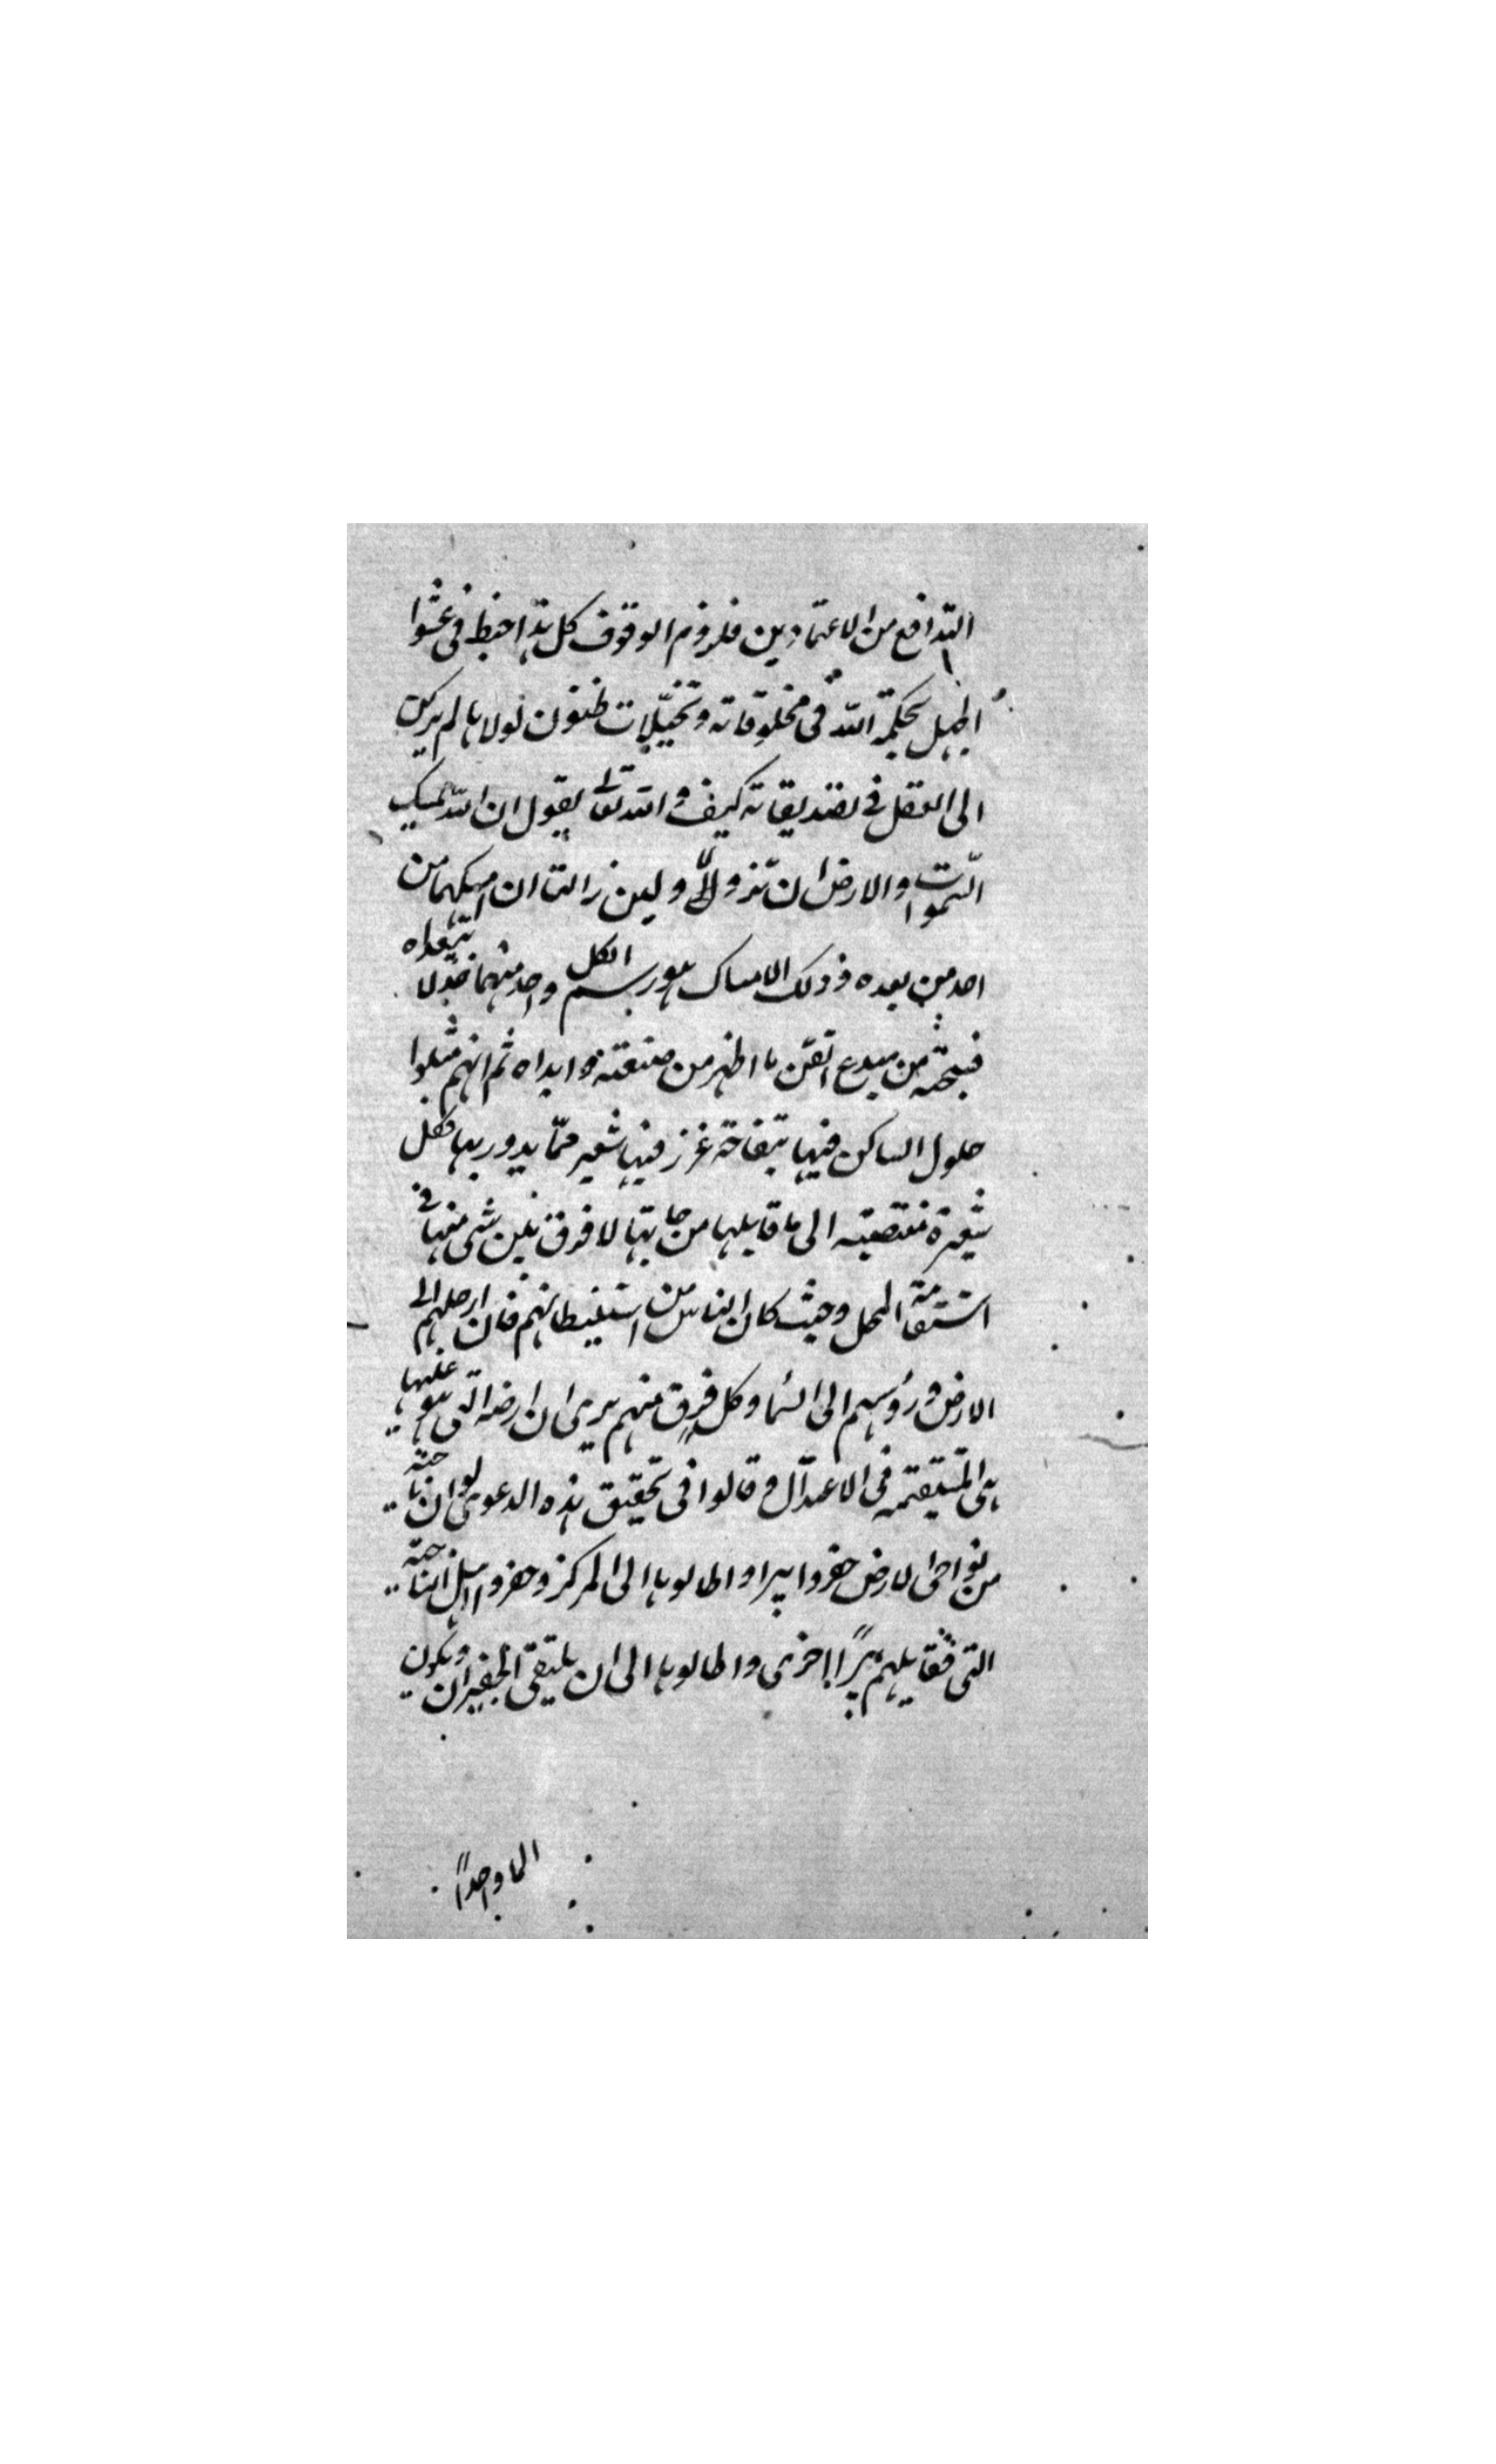 التدافع من الاعتمادين فلزوم الوقوف كل هذا خبط في عشوا
الجهل بحكمة الله في مخلوقاته وتخيلات ظنون لولاها لم يركن
الى العقل في تصديقاته كيف والله تعالى يقول ان الله يمسك
السموات والارض ان تزولا ولين زالتا ان امسكهما من
احد من بعده فذلك الامساك هو رسم لكل واحد منهما حدا لا يتعداه
فسبحنه من مبدع اتقن ما اظهر من صنعته وابداه ثم انهم مثلوا
حلول الساكن فيها بتفاحة غرز فيها شعير مما يدور بها فكل
شعيرة منتصبة الى ما قابلها من جانبها لا فرق بين شى منها في
استقامة المحل وحيث كان الناس من استيطانهم فان ارجلهم الى
الارض ورؤسهم الى السما وكل فرق منهم يرى ان ارضه التى هو عليها
هى المستقيمة في الاعتدال وقالوا في تحقيق هذه الدعوى لو ان ناحية
من نواحى الارض حفروا بيرا واطالوها الى المركز وحفر اهل الناحية
التى تقابلهم بيرًا اخرى واطالوها الى ان يلتقى الحفيران ويكون
الما واحدًا